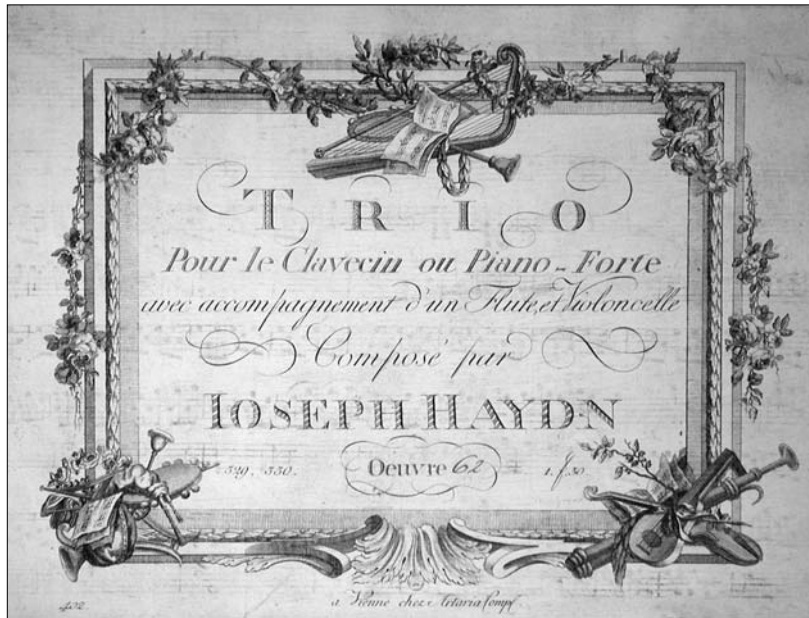 TRIO
Pour le Clavecin ou Piano-Forte
avec accompagnement d'un Flute, et Violoncelle
Composé par
IOSEPH HAYDN
329. 330. Oeuvre 62 1. f 30
a Vienne chez Artaria Comp.